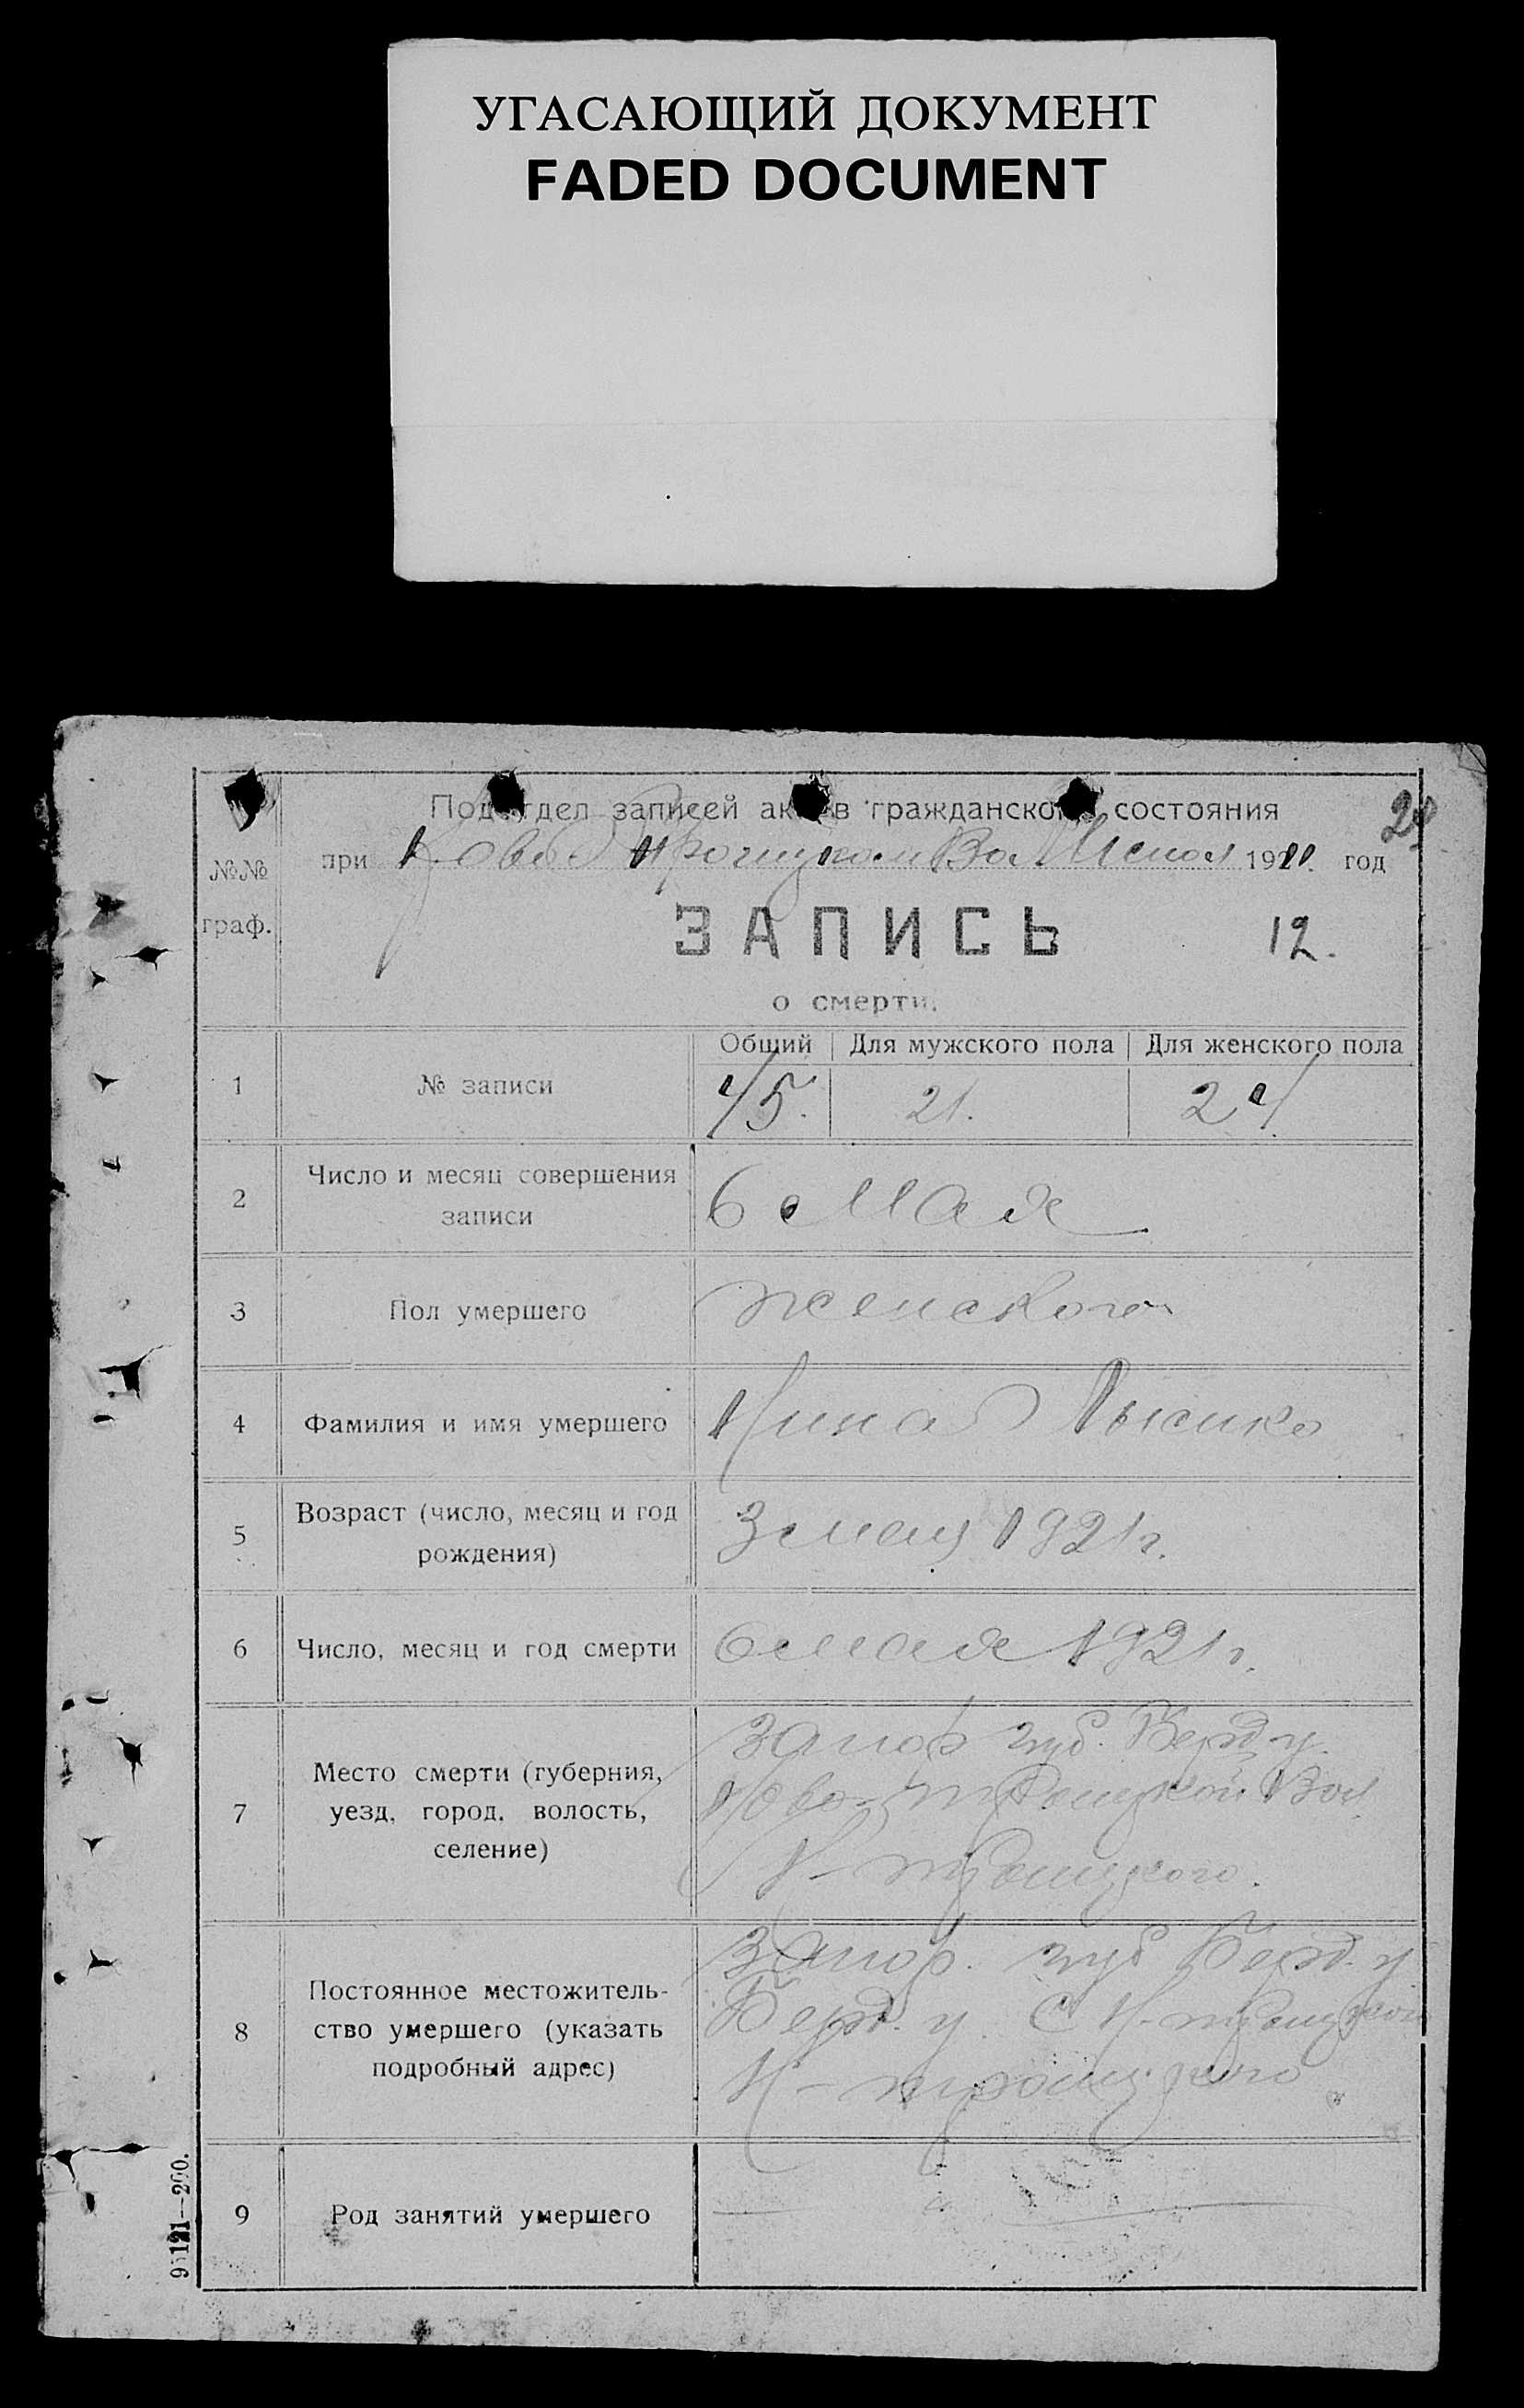 УГАСАЮЩИЙ ДОКУМЕНТ
FADED DOCUMENT
Подотдел записей актов гражданского состояния
28
при Ново Троицком Вол Исполк 1921 год
№№
граф.
ЗАПИСЬ
12.
о смерти.
Общий Для мужского пола Для женского пола
1 № записи 45. 21. 24
2 Число и месяц совершения
записи
6 Мая
3 Пол умершего женского
4 Фамилия и имя умершего Нина Лысико
5 Возраст (число, месяц и год
рождения)
3 мая 1921 г.
6 Число, месяц и год смерти 6 мая 1921 г.
7 Место смерти (губерния,
уезд, город, волость,
селение)
Запор губ. Берд у.
Ново-троицкой Вол
Н-троицкого.
8 Постоянное местожитель-
ство умершего (указать
подробный адрес)
Запор. губ Берд. у
Берд. у. С Н-троицкой
Н-троицкого
9 Род занятий умершего —